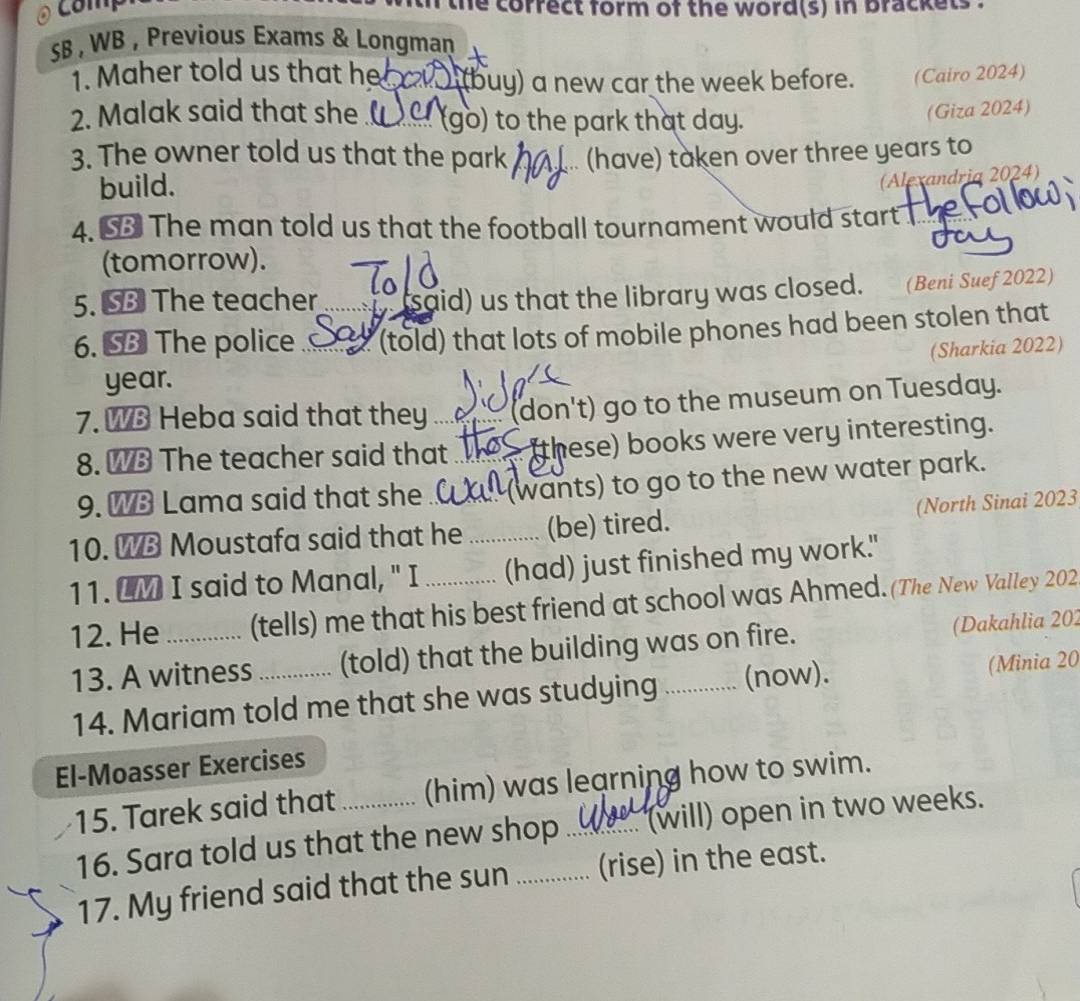 the correct form of the word(s) in brackets :
SB , WB , Previous Exams & Longman
1. Maher told us that he bought (buy) a new car the week before. (Cairo 2024)
2. Malak said that she went (go) to the park that day. (Giza 2024)
3. The owner told us that the park had (have) taken over three years to
build. (Alexandria 2024)
4. SB The man told us that the football tournament would start the followi
day
(tomorrow).
Told
5. SB The teacher ............ (said) us that the library was closed. (Beni Suef 2022)
6. SB The police Say (told) that lots of mobile phones had been stolen that
year. (Sharkia 2022)
7. WB Heba said that they didn't (don't) go to the museum on Tuesday.
8. WB The teacher said that thos (these) books were very interesting.
9. WB Lama said that she wanted (wants) to go to the new water park.
10. WB Moustafa said that he ............ (be) tired. (North Sinai 2023
11. LM I said to Manal, " I ............ (had) just finished my work."
12. He ............ (tells) me that his best friend at school was Ahmed. (The New Valley 202
13. A witness ............ (told) that the building was on fire. (Dakahlia 202
14. Mariam told me that she was studying ............ (now). (Minia 20
El-Moasser Exercises
15. Tarek said that ............ (him) was learning how to swim.
16. Sara told us that the new shop would (will) open in two weeks.
17. My friend said that the sun ............ (rise) in the east.